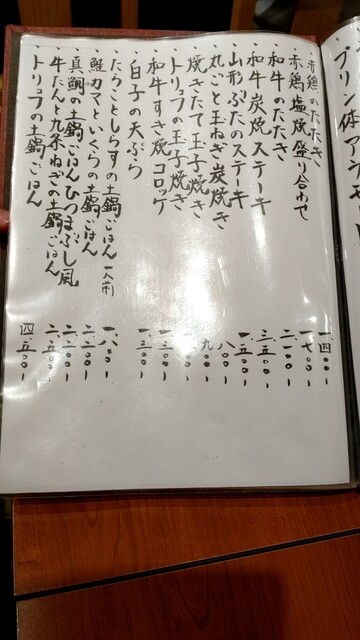 プリン体
・赤鶏のたたき 一、四〇〇-
・赤鶏塩焼盛り合わせ 一、七〇〇-
・和牛のたたき 二、一〇〇-
・和牛炭焼ステーキ 三、五〇〇-
・山形ぶたのステーキ 一、五〇〇-
・丸ごと玉ねぎ炭焼き 八〇〇-
・焼きたて玉子焼き 九〇〇-
・トリュフの玉子焼き
・和牛すき焼コロッケ
・白子の天ぷら 一、三〇〇-
・たらことしらすの土鍋ごはん 一人前 一、八〇〇-
・鮭カマといくらの土鍋ごはん
・真鯛の土鍋ごはんひつまぶし風
・牛たんと九条ねぎの土鍋ごはん
・トリュフの土鍋ごはん 四、五〇〇-